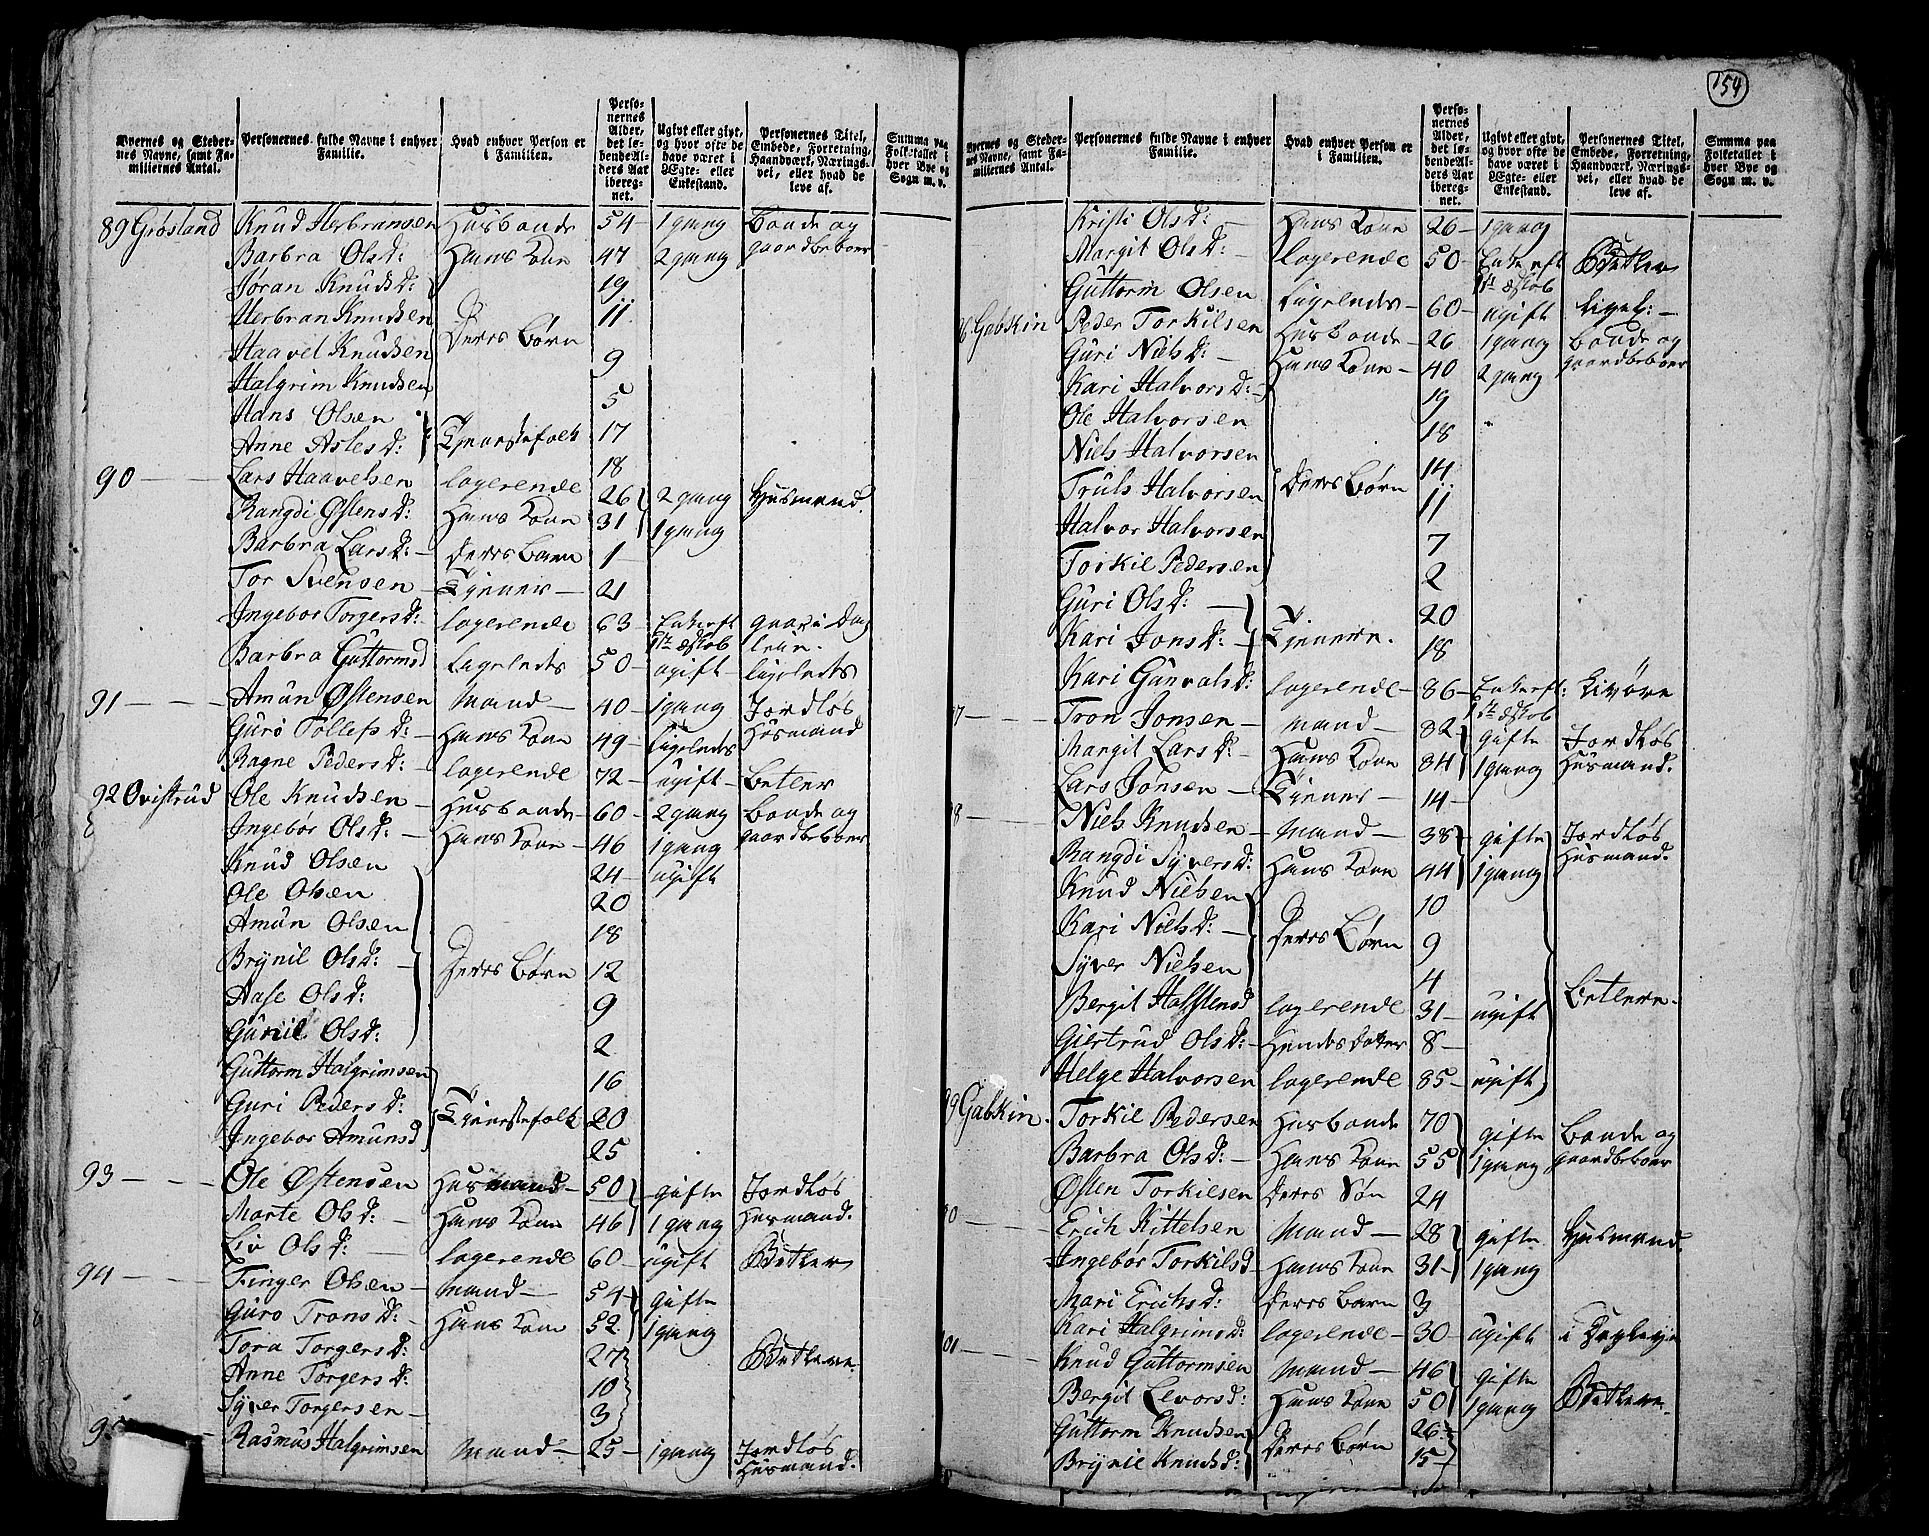 154
Byernes og Stedernes Navne, samt Familiernes Antal.
Personernes fulde Navne i enhver Familie.
Hvad enhver Person er i Familien.
Personernes Alder, det løbende Alders Aar iberegnet.
Ugivt eller givt, og hvor ofte de have været i Ægte- eller Enkestand.
Personernes Titel, Embede, Forretning, Haandværk, Næringsvei, eller hvad de leve af.
Summa paa Folketallet i hver Bye og Sogn m. v.
89 Grøsland Knud Herbransen Husbonde 54 1 gang Bonde og
Barbra Olsd: Hans Kone 47 2 gang gaardbeboer
Jøran Knudsd: 19
Herbran Knudsen 11
Haavel Knudsen Deres Børn 9
Halgrim Knudsen 5
Hans Olsen 17
Anne Aslesd: Tjenestefolk 18
90 Lars Haavelsen logerende 26 2 gang Husmand.
Rangdi Østensd: Hans Kone 31 1 gang
Barbra Larsd: Deres Barn 1
Tor Svensen Tjener 21
Ingebor Torgersd: logerende 63 Enke eft 1te Ægtsk
Barbra Guttormsd Ligeledes 50 ugift ligeledes
91 Amun Østensen Mand 40 1 gang Jordløs
Guro Tollefsd: Hans Kone 49 ligeledes Husmand
Ragne Pedersd: logerende 72 ugift Betler
92 Ovistrud Ole Knudsen Husbonde 60 2 gang Bonde og
Ingebør Olsd: Hans Kone 46 1 gang gaardbeboer
Knud Olsen 24 ugift
Ole Olsen 20
Amun Olsen 18
Brynil Olsd: Deres Børn 12
Aase Olsd: 9
Gunil Olsd: 2
Guttorm Halgrimsen 16
Guri Pedersd: Tjenestefolk 20
Ingebor Amunsd 25
93 Ole Østensen Husmand 50 gifte Jordløs
Marte Olsd: Hans Kone 46 1 gang Husmand.
Liv Olsd: logerende 60 ugift Betler
94 Finger Olsen Mand 54 gifte
Guro Tronsd: Hans Kone 52 1 gang
Tora Torgersd: 27 Betlere
Anne Torgersd: 10
Syver Torgersen 3
95 Rasmus Halgrimsen Mand 25 1 gang Jordløs Husmand.
Byernes og Stedernes Navne, samt Familiernes Antal.
Personernes fulde Navne i enhver Familie.
Hvad enhver Person er i Familien.
Personernes Alder, det løbende Alders Aar iberegnet.
Ugivt eller givt, og hvor ofte de have været i Ægte- eller Enkestand.
Personernes Titel, Embede, Forretning, Haandværk, Næringsvei, eller hvad de leve af.
Summa paa Folketallet i hver Bye og Sogn m. v.
Kristi Olsd: Hans Kone 26 1 gang
Margit Olsd: logerende 50 Enke eft 1te Ægtsk Betler
Guttorm Olsen Ligeledes 60 ugift ligel:
6 Gabskin Peder Torkilsen Husbonde 26 1 gang Bonde og
Guri Nielsd: Hans Kone 40 2 gang gaardbeboer
Kari Halvorsd: 19
Ole Halvorsen 18
Niels Halvorsen 14
Truls Halvorsen Deres Børn 11
Halvor Halvorsen 7
Torkil Pedersen 2
Guri Olsd: 20
Kari Jonsd: Tjenere. 18
Kari Gunvalsd: logerende 86 Enke eft: 1te Ægtsk
7 Tron Jonsen Mand 82 gifte Jordløs
Margit Larsd: Hans Kone 84 1 gang Husmand.
Lars Jonsen Tjener 14
8 Niels Knudsen Mand 38 gifte Jordløs
Rangdi Syversd: Hans Kone 44 1 gang Husmand.
Knud Nielsen 10
Kari Nielsd: Deres Børn 9
Syver Nielsen 4
Bergit Halstensd logerende 31 ugift Betlere.
Giertrud Olsd: Hendes Dotter 8
Helge Halvorsen logerende 85 ugift
99 Gabskin Torkil Pedersen Husbonde 70 gifte Bonde og
Barbra Olsd: Hans Kone 55 1 gang gaardbeboer
Østen Torkilsen Deres Søn 24
00 Erich Kittelsen Mand 28 gifte Husmand.
Ingebør Torkilsd Hans Kone 31 1 gang
Mari Erichsd: Deres Barn 3
Kari Halgrimsd: logerende 30 ugift
01 Knud Guttormsen Mand 46 gifte
Bergit Levorsd: Hans Kone 50 1 gang Betlere.
Guttorm Knudsen Deres Børn 26
Brynil Knudsd: 15